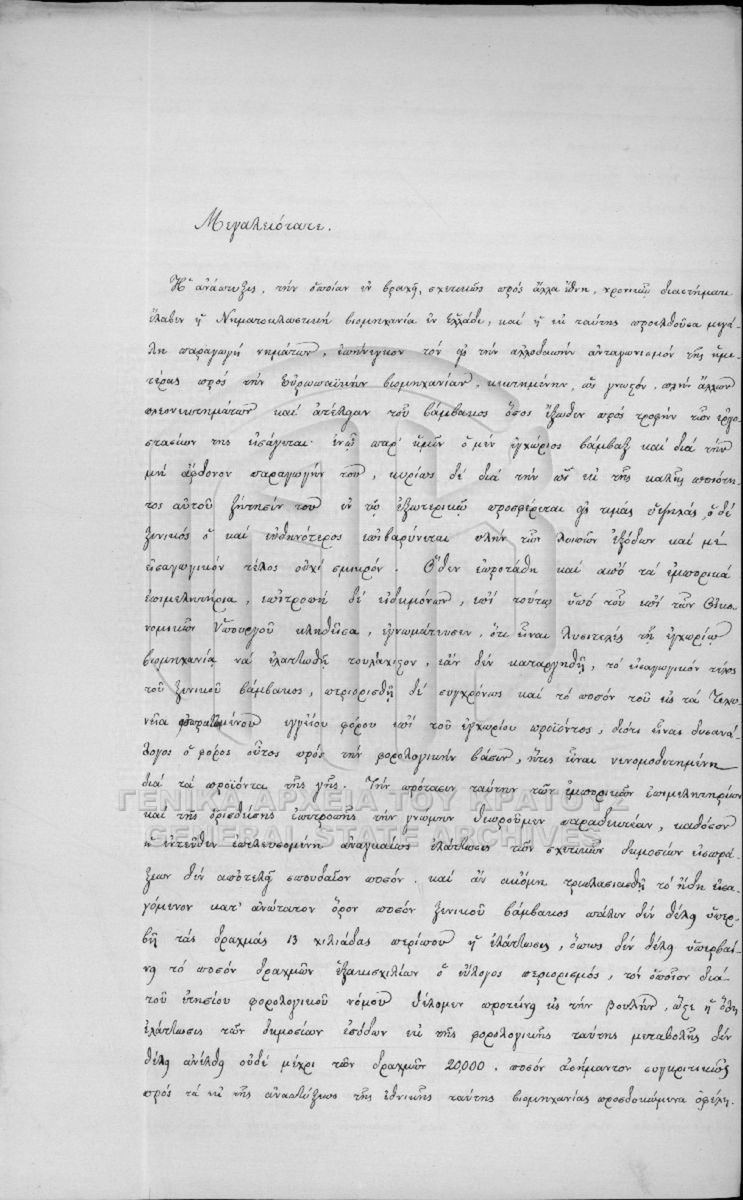 Μεγαλειότατε.
Ἡ ἀνάπτυξις, τὴν ὁποίαν ἐν βραχεῖ, σχετικῶς πρὸς ἄλλα ἔθνη, χρονικῷ διαστήματι
ἔλαβεν ἡ Νηματοκλωστικὴ βιομηχανία ἐν Ἑλλάδι, καὶ ἡ ἐκ ταύτης προελθοῦσα μεγά-
λη παραγωγὴ νημάτων, ἐπήνεγκον τὸν εἰς τὴν ἀλλοδαπὴν ἀνταγωνισμὸν τῆς ἡμε-
τέρας πρὸς τὴν Εὐρωπαϊκὴν βιομηχανίαν, κεκτημένην, ὡς γνωστὸν, πλὴν ἄλλων
πλεονεκτημάτων καὶ ἀτέλειαν τοῦ βάμβακος ὅσος ἔξωθεν πρὸς τροφὴν τῶν ἐργο-
στασίων της εἰσάγεται· ἐνῷ παρ' ἡμῖν ὁ μὲν ἐγχώριος βάμβαξ καὶ διὰ τὴν
μὴ ἄφθονον παραγωγήν του, κυρίως δὲ διὰ τὴν ὡς ἐκ τῆς καλῆς ποιότη-
τος αὐτοῦ ζήτησίν του ἐν τῷ ἐξωτερικῷ προσφέρεται εἰς τιμὰς ὑψηλάς, ὁ δὲ
ξενικὸς ὁ καὶ εὐθηνότερος ἐπιβαρύνεται πλὴν τῶν λοιπῶν ἐξόδων καὶ μὲ
εἰσαγωγικὸν τέλος οὐχὶ σμικρόν. Ὅθεν ἐπροτάθη καὶ ἀπὸ τὰ ἐμπορικὰ
ἐπιμελητήρια, ἐπιτροπὴ δὲ εἰδημόνων, ἐπὶ τούτῳ ὑπὸ τοῦ ἐπὶ τῶν Οἰκο-
νομικῶν Ὑπουργοῦ κληθεῖσα, ἐγνωμάτευσεν, ὅτι εἶναι λυσιτελὲς τῇ ἐγχωρίῳ
βιομηχανίᾳ νὰ ἐλαττωθῇ τουλάχιστον, ἐὰν δὲν καταργηθῇ, τὸ εἰσαγωγικὸν τέλος
τοῦ ξενικοῦ βάμβακος, περιορισθῇ δὲ συγχρόνως καὶ τὸ ποσὸν τοῦ εἰς τὰ Τελω-
νεῖα εἰσπραττομένου ἐγγείου φόρου ἐπὶ τοῦ ἐγχωρίου προϊόντος, διότι εἶναι δυσανά-
λογος ὁ φόρος οὗτος πρὸς τὴν φορολογικὴν βάσιν, ἥτις εἶναι νενομοθετημένη
διὰ τὰ προϊόντα τῆς γῆς. Τὴν πρότασιν ταύτην τῶν ἐμπορικῶν ἐπιμελητηρίων
καὶ τῆς ὁρισθείσης ἐπιτροπῆς τὴν γνώμην θεωροῦμεν παραδεκτέαν, καθόσον
ἡ ἐντεῦθεν ἐπελευσομένη ἀναγκαίως ἐλάττωσις τῶν σχετικῶν δημοσίων εἰσπρά-
ξεων δὲν ἀποτελεῖ σπουδαῖον ποσόν. καὶ ἂν ἀκόμη τριπλασιασθῇ τὸ ἤδη εἰσα-
γόμενον κατ' ἀνώτατον ὅρον ποσὸν ξενικοῦ βάμβακος πάλιν δὲν θέλει ὑπερ-
βῆ τὰς δραχμὰς 13 χιλιάδας περίπου ἡ ἐλάττωσις, ὅπως δὲν θέλει ὑπερβαί-
νει τὸ ποσὸν δραχμῶν ἑξακισχιλίων ὁ εὔλογος περιορισμός, τὸν ὁποῖον διὰ
τοῦ ἐτησίου φορολογικοῦ νόμου θέλομεν προτείνει εἰς τὴν βουλὴν, ὥστε ἡ ὅλη
ἐλάττωσις τῶν δημοσίων ἐσόδων ἐκ τῆς φορολογικῆς ταύτης μεταβολῆς δὲν
θέλει ἀνέλθει οὐδὲ μέχρι τῶν δραχμῶν 20,000. ποσὸν ἀσήμαντον συγκριτικῶς
πρὸς τὰ ἐκ τῆς ἀναπτύξεως τῆς ἐθνικῆς ταύτης βιομηχανίας προσδοκώμενα ὀφέλη.
ΓΕΝΙΚΑ ΑΡΧΕΙΑ ΤΟΥ ΚΡΑΤΟΥΣ
GENERAL STATE ARCHIVES